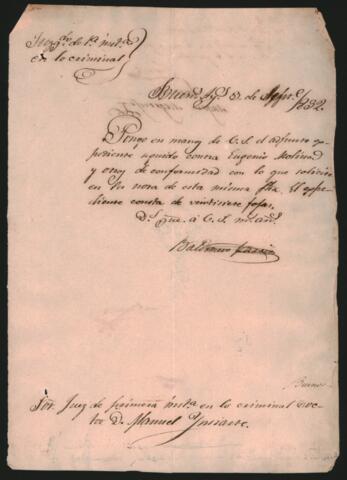 Juzg.do de 1.a inst.a
en lo criminal
Buenos Ay.s 5. de Sep.re
1832.
Pongo en manos de V.S. el adjunto es-
pediente seguido contra Eugenio Molina
y otros de conformidad con lo que solicita
en su nota de esta misma fha. El espe-
diente consta de veintisiete fojas.
D.s gue. à V.S. m.s an.s
Baldomero
Sor. Juez de primera inst.a en lo criminal Doc-
tor D. Manuel Insiarte.